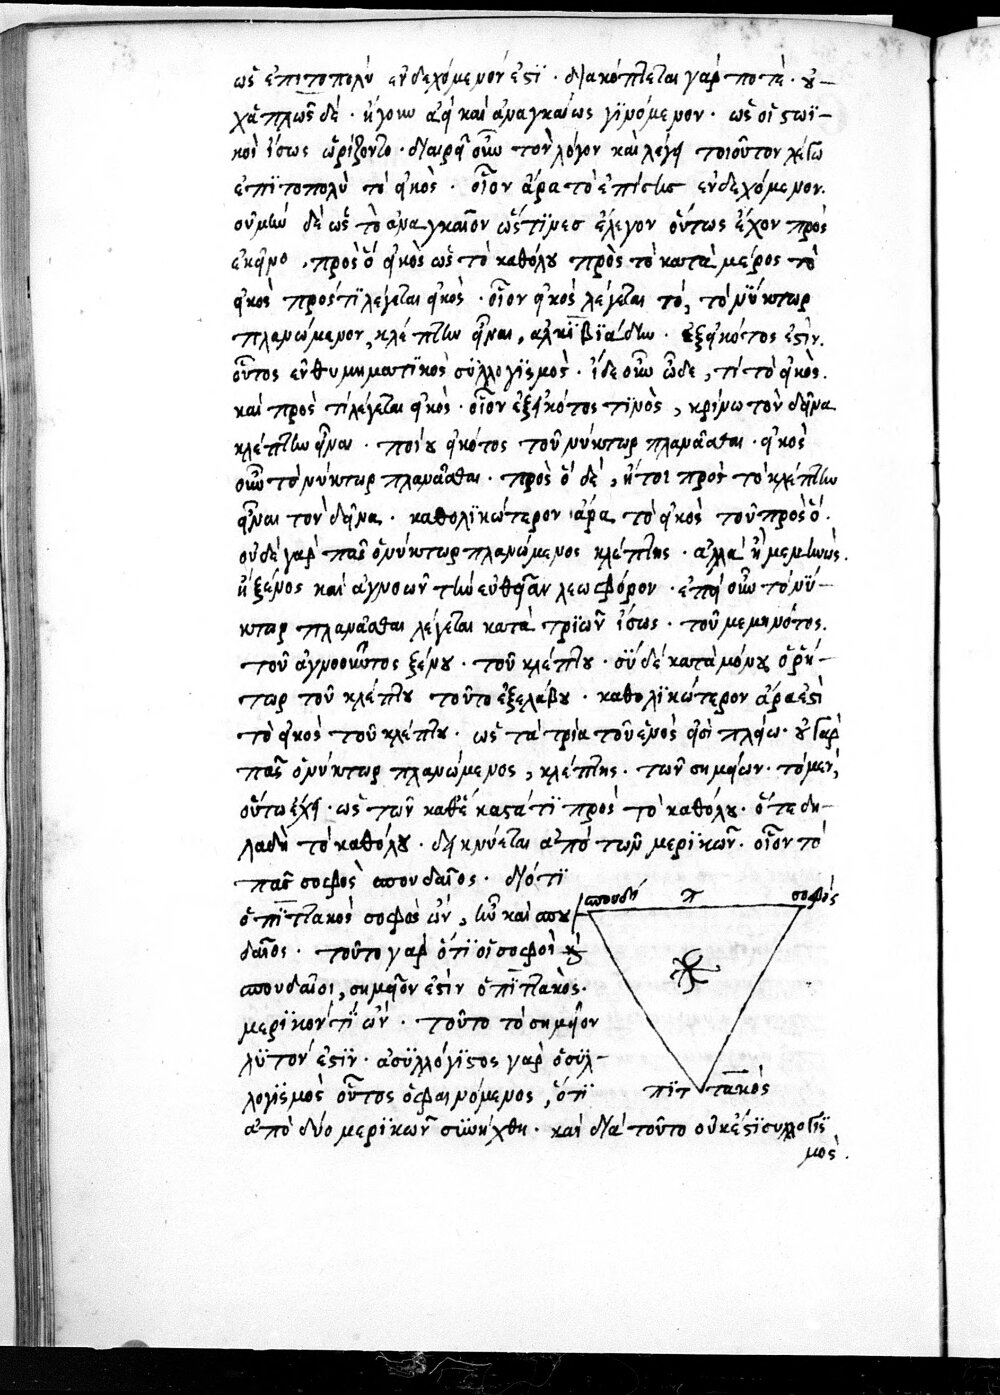 ὡς ἐπιτοπολὺ ἐνδεχόμενόν ἐστι · διακόπτεται γὰρ ποτὲ · οὐ-
χ ἁπλῶς δὲ · ἤγουν ἀεὶ καὶ ἀναγκαίως γινόμενον · ὡς οἱ στωϊ-
κοὶ ἴσως ὡρίζοντο · διαιρεῖ οὖν τὸν λόγον καὶ λέγει τοιοῦτον λέγω
ἐπιτοπολὺ τὸ εἰκὸς · οἷον ἄρα τὸ ἐνδεχόμενον.
οὐ μὴν δὲ ὡς τὸ ἀναγκαῖον ὥς τινες ἔλεγον οὕτως ἔχον πρὸς
ἐκεῖνο, πρὸς ὃ εἰκὸς ὡς τὸ καθόλου πρὸς τὸ κατὰ μέρος τὸ
εἰκὸς πρός τι λέγεται εἰκὸς · οἷον εἰκὸς λέγεται τὸ, τὸ νύκτωρ
πλανώμενον, κλέπτην εἶναι, ἀλκιβιάδην · ἐξ εἰκότος ἐστὶν.
οὗτος ἐνθυμηματικὸς συλλογισμὸς · ἴδε οὖν ὧδε, τί τὸ εἰκὸς.
καὶ πρὸς τί λέγεται εἰκὸς · οἷον ἐξ εἰκότος τινὸς, κρίνω τὸν δεῖνα
κλέπτην εἶναι · ποίου εἰκότος τοῦ νύκτωρ πλανᾶσθαι · εἰκὸς
οὖν τὸ νύκτωρ πλανᾶσθαι · πρὸς ὃ δὲ, ἤτοι πρὸς τὸ κλέπτην
εἶναι τὸν δεῖνα · καθολικώτερον ἄρα τὸ εἰκὸς τοῦ πρὸς ὅ.
οὐδὲ γὰρ πᾶς ὁ νύκτωρ πλανώμενος κλέπτης · ἀλλὰ ἢ μεμηνώς.
ἢ ξένος καὶ ἀγνοῶν τὴν εὐθεῖαν λεωφόρον · ἐπεὶ οὖν τὸ νύ-
κτωρ πλανᾶσθαι λέγεται κατὰ τριῶν ἴσως · τοῦ μεμηνότος.
τοῦ ἀγνοοῦντος ξένου · τοῦ κλέπτου · σὺ δὲ κατὰ μόνου ὁ ῥή-
τωρ τοῦ κλέπτου τοῦτο ἐξελάβου · καθολικώτερον ἄρα ἐστὶ
τὸ εἰκὸς τοῦ κλέπτου · ὡς τὰ τρία τοῦ ἑνὸς εἰσὶ πλείω · οὐ γὰρ
πᾶς ὁ νύκτωρ πλανώμενος, κλέπτης · τῶν σημείων · τὸ μὲν,
οὕτω ἔχει · ὡς τῶν καθ' ἕκαστά τι πρὸς τὸ καθόλου · ὅτε δη-
λαδὴ τὸ καθόλου · δείκνυται ἀπὸ τῶν μερικῶν · οἷον τὸ
πᾶς σοφὸς σπουδαῖος · διότι
ὁ πιττακὸς σοφὸς ὢν, ἦν καὶ σπου
δαῖος · τοῦτο γὰρ ὅτι οἱ σοφοὶ καὶ
σπουδαῖοι, σημεῖον ἐστὶν ὁ πιττακὸς.
μερικόν τι ὤν · τοῦτο τὸ σημεῖον
λυτόν ἐστιν · ἀσυλλόγιστος γὰρ ὁ συλ-
λογισμὸς οὗτος ὁ φαινόμενος, ὅτι
ἀπὸ δύο μερικῶν συνήχθη · καὶ διὰ τοῦτο οὐκ ἔστι συλλογι
μὸς.
σπουδαῖ
σοφὸς
πιττακὸς